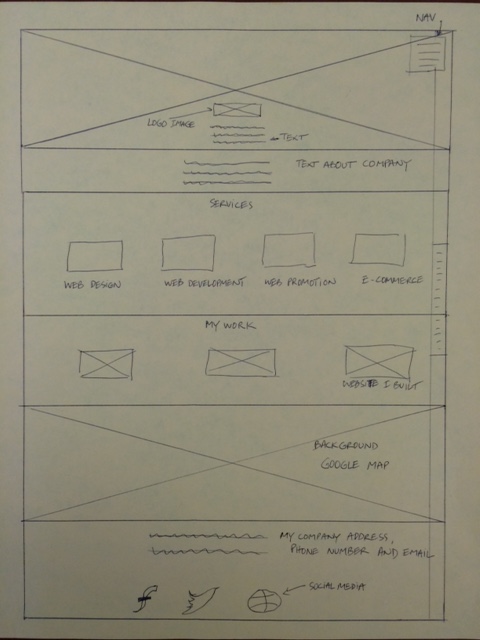 NAV
LOGO IMAGE
TEXT
TEXT ABOUT COMPANY
SERVICES
WEB DESIGN
WEB DEVELOPMENT
WEB PROMOTION
E-COMMERCE
MY WORK
WEBSITE I BUILT
BACKGROUND
GOOGLE MAP
MY COMPANY ADDRESS,
PHONE NUMBER AND EMAIL
SOCIAL MEDIA